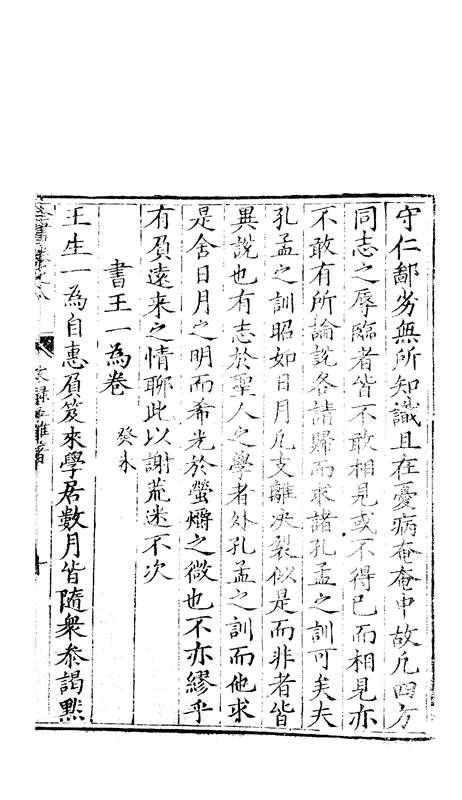 守仁鄙劣無所知識且在憂病奄奄中故凡四方
同志之辱臨者皆不敢相見或不得已而相見亦
不敢有所論說各請歸而求諸孔孟之訓可矣夫
孔孟之訓昭如日月凡支離决裂似是而非者皆
異說也有志於聖人之學者外孔孟之訓而他求
是舍日月之明而希光於螢爝之微也不亦繆乎
有負遠來之情聊此以謝荒迷不次
書王一為卷 癸未
王生一為自惠負笈來學居數月皆隨衆叅謁黙
全書卷之八 文録五雜著